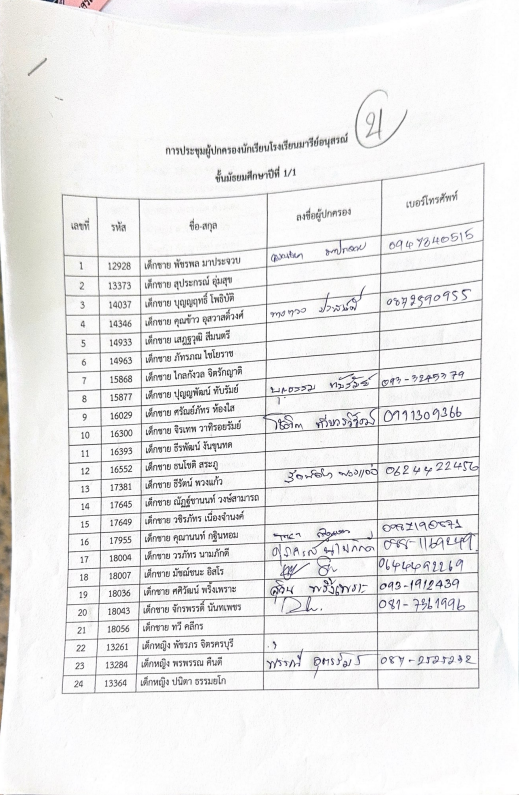 การประชุมผู้ปกครองนักเรียนโรงเรียนมารีย์อนุสรณ์
ชั้นมัธยมศึกษาปีที่ 1/1
เลขที่ รหัส ชื่อ-สกุล ลงชื่อผู้ปกครอง เบอร์โทรศัพท์
1 12928 เด็กชาย พัชรพล มาประจวบ 0947840515
2 13373 เด็กชาย สุประกรณ์ อุ่มสุข
3 14037 เด็กชาย บุญญฤทธิ์ โพธิบัติ
4 14346 เด็กชาย คุณข้าว อุสวาสดิ์วงศ์ 0872590955
5 14933 เด็กชาย เสฏฐวุฒิ สืมนตรี
6 14963 เด็กชาย ภัทรภณ ไชโยราช
7 15868 เด็กชาย ไกลกังวล จิตรักญาติ
8 15877 เด็กชาย ปุญญพัฒน์ ทับรัมย์ 093-3245379
9 16029 เด็กชาย ศรัณย์ภัทร ห้องใส
10 16300 เด็กชาย จิรเทพ วาทิรอยรัมย์
11 16393 เด็กชาย ธีรพัฒน์ งันขุนทด
12 16552 เด็กชาย ธนโชติ สระภู
13 17381 เด็กชาย ธีรัตน์ พวงแก้ว 0624422456
14 17645 เด็กชาย ณัฏฐ์ชานนท์ วงษ์สามารถ
15 17649 เด็กชาย วชิรภัทร เนื่องจำนงค์
16 17955 เด็กชาย คุณานนท์ กฐินหอม
17 18004 เด็กชาย วรภัทร นามภักดี
18 18007 เด็กชาย มัชฌ์ชนะ อิสโร
19 18036 เด็กชาย ศศิวัฒน์ พริ้งเพราะ พริ้งเพราะ 093-1912439
20 18043 เด็กชาย จักรพรรดิ์ นันทเพชร 081-7361996
21 18056 เด็กชาย ทวี คลีกร
22 13261 เด็กหญิง พัชรภร จิตรครบุรี
23 13284 เด็กหญิง พรพรรณ คินดี
24 13364 เด็กหญิง ปนิตา ธรรมยโก